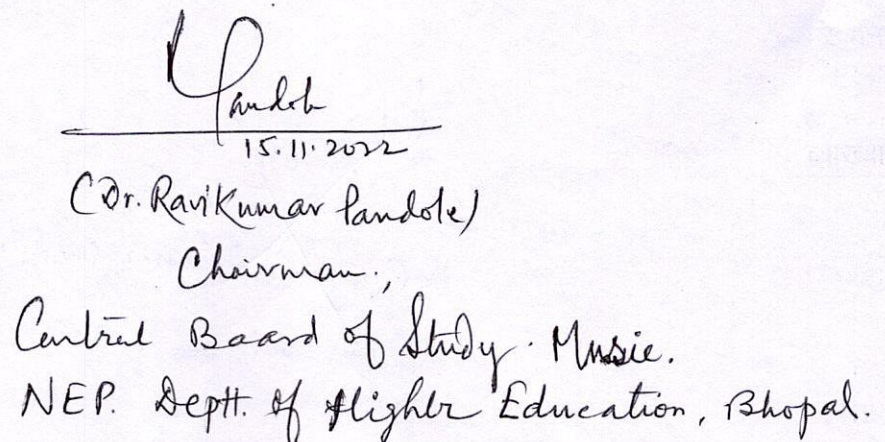 Pandole
15.11.2022
(Dr. Ravikumar Pandole)
Chairman.,
Central Board of Study. Music.
NEP. Deptt. of Higher Education, Bhopal.